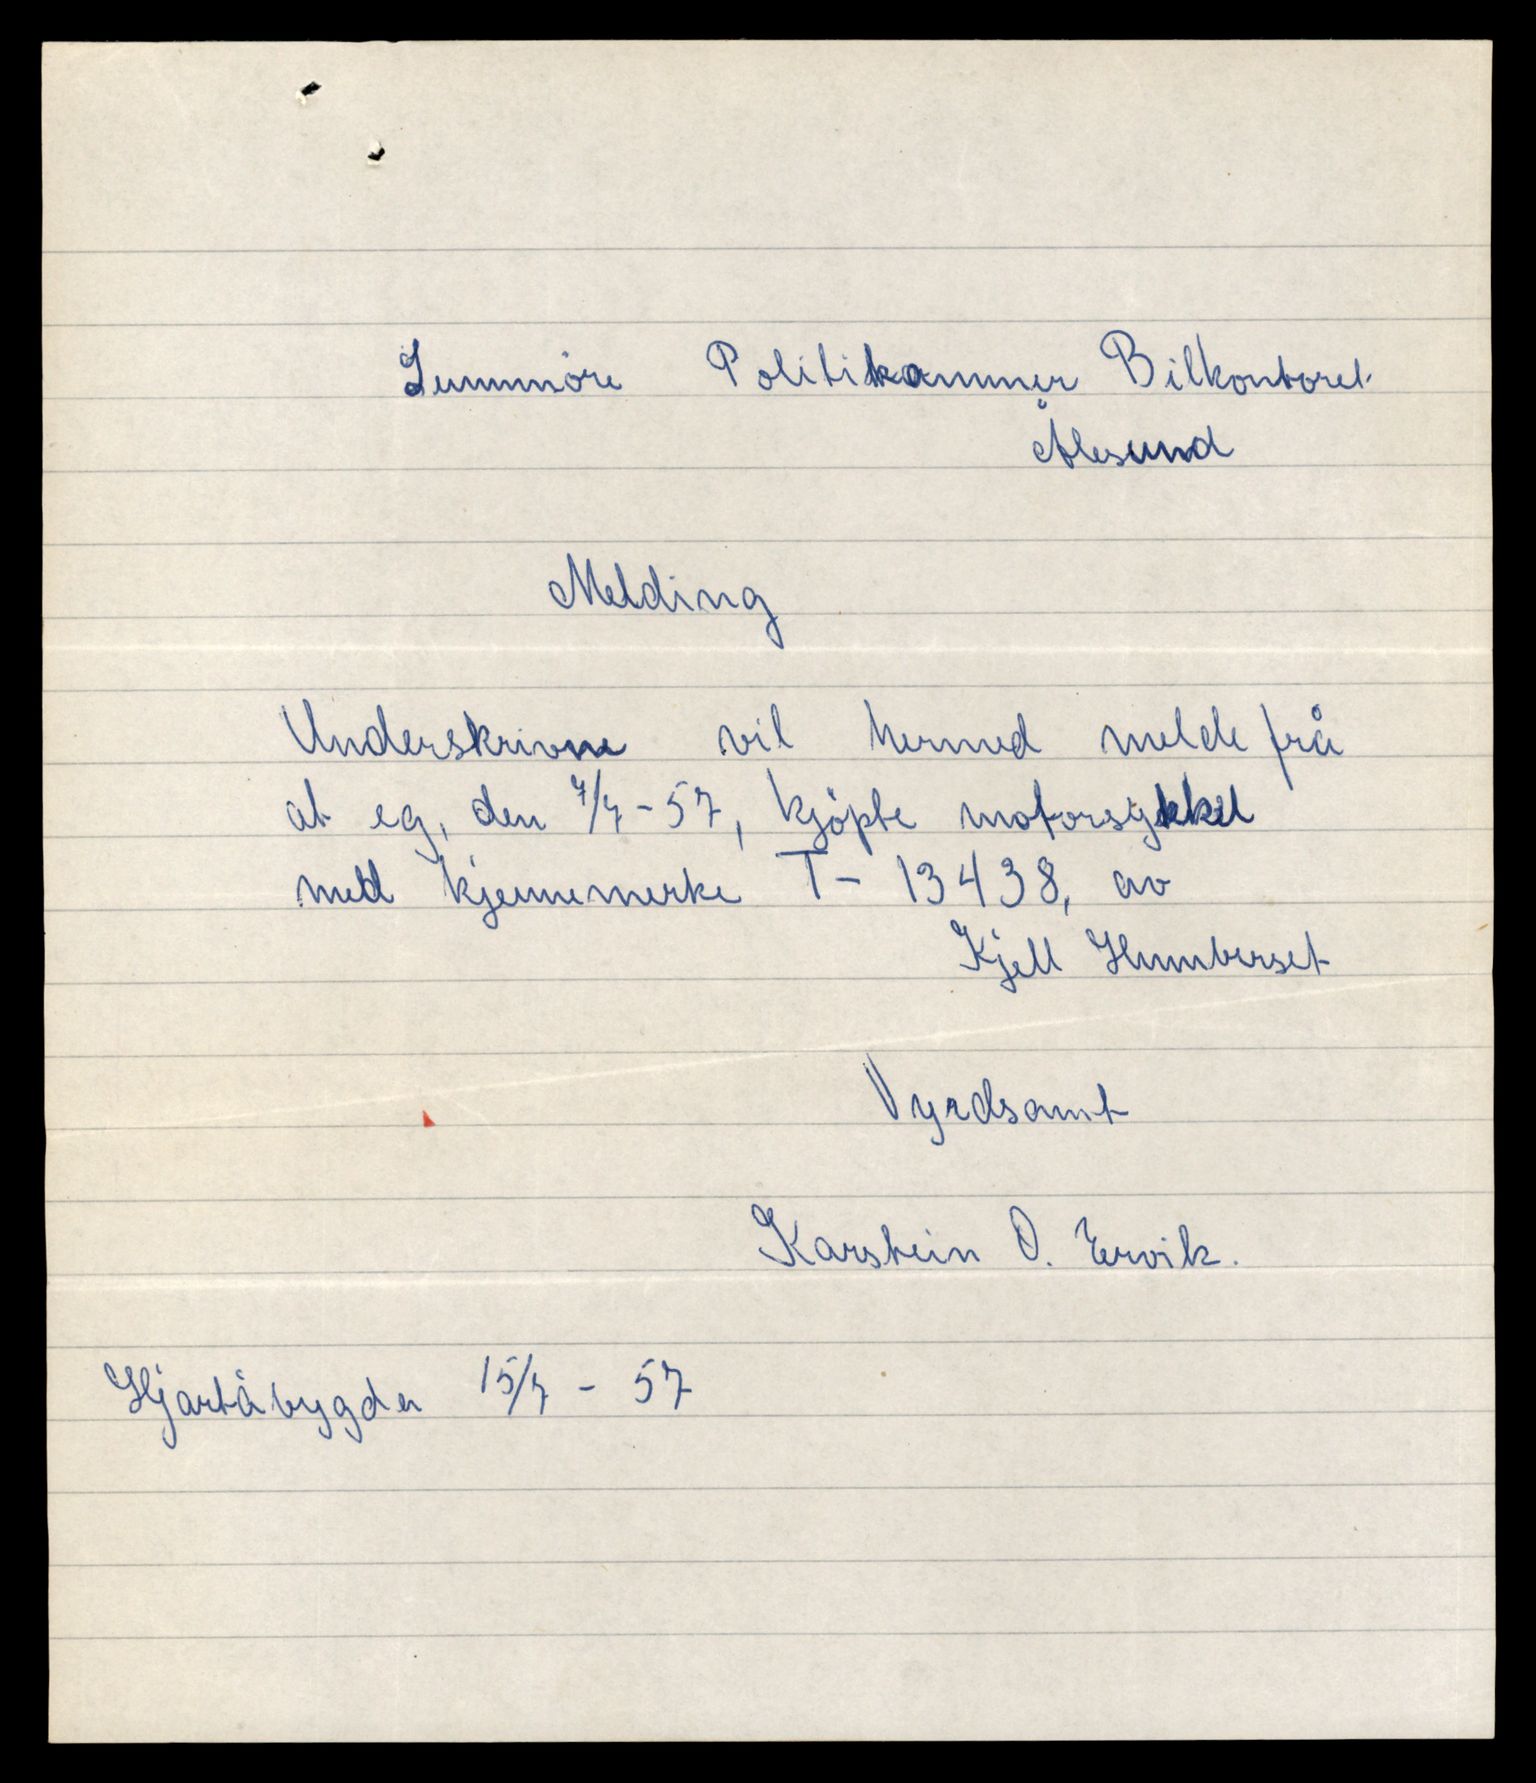 Sunnmöre Politikammer Bilkontoret
Ålesund
Melding
Underskrivne vil hermed melde frå
at eg, den 7/7-57, kjöpte motorsykkel
med kjennemerke T-13438, av
Kjell Humberset
Vyrdsamt
Karstein O. Ervik.
Hjartåbygda 15/7-57